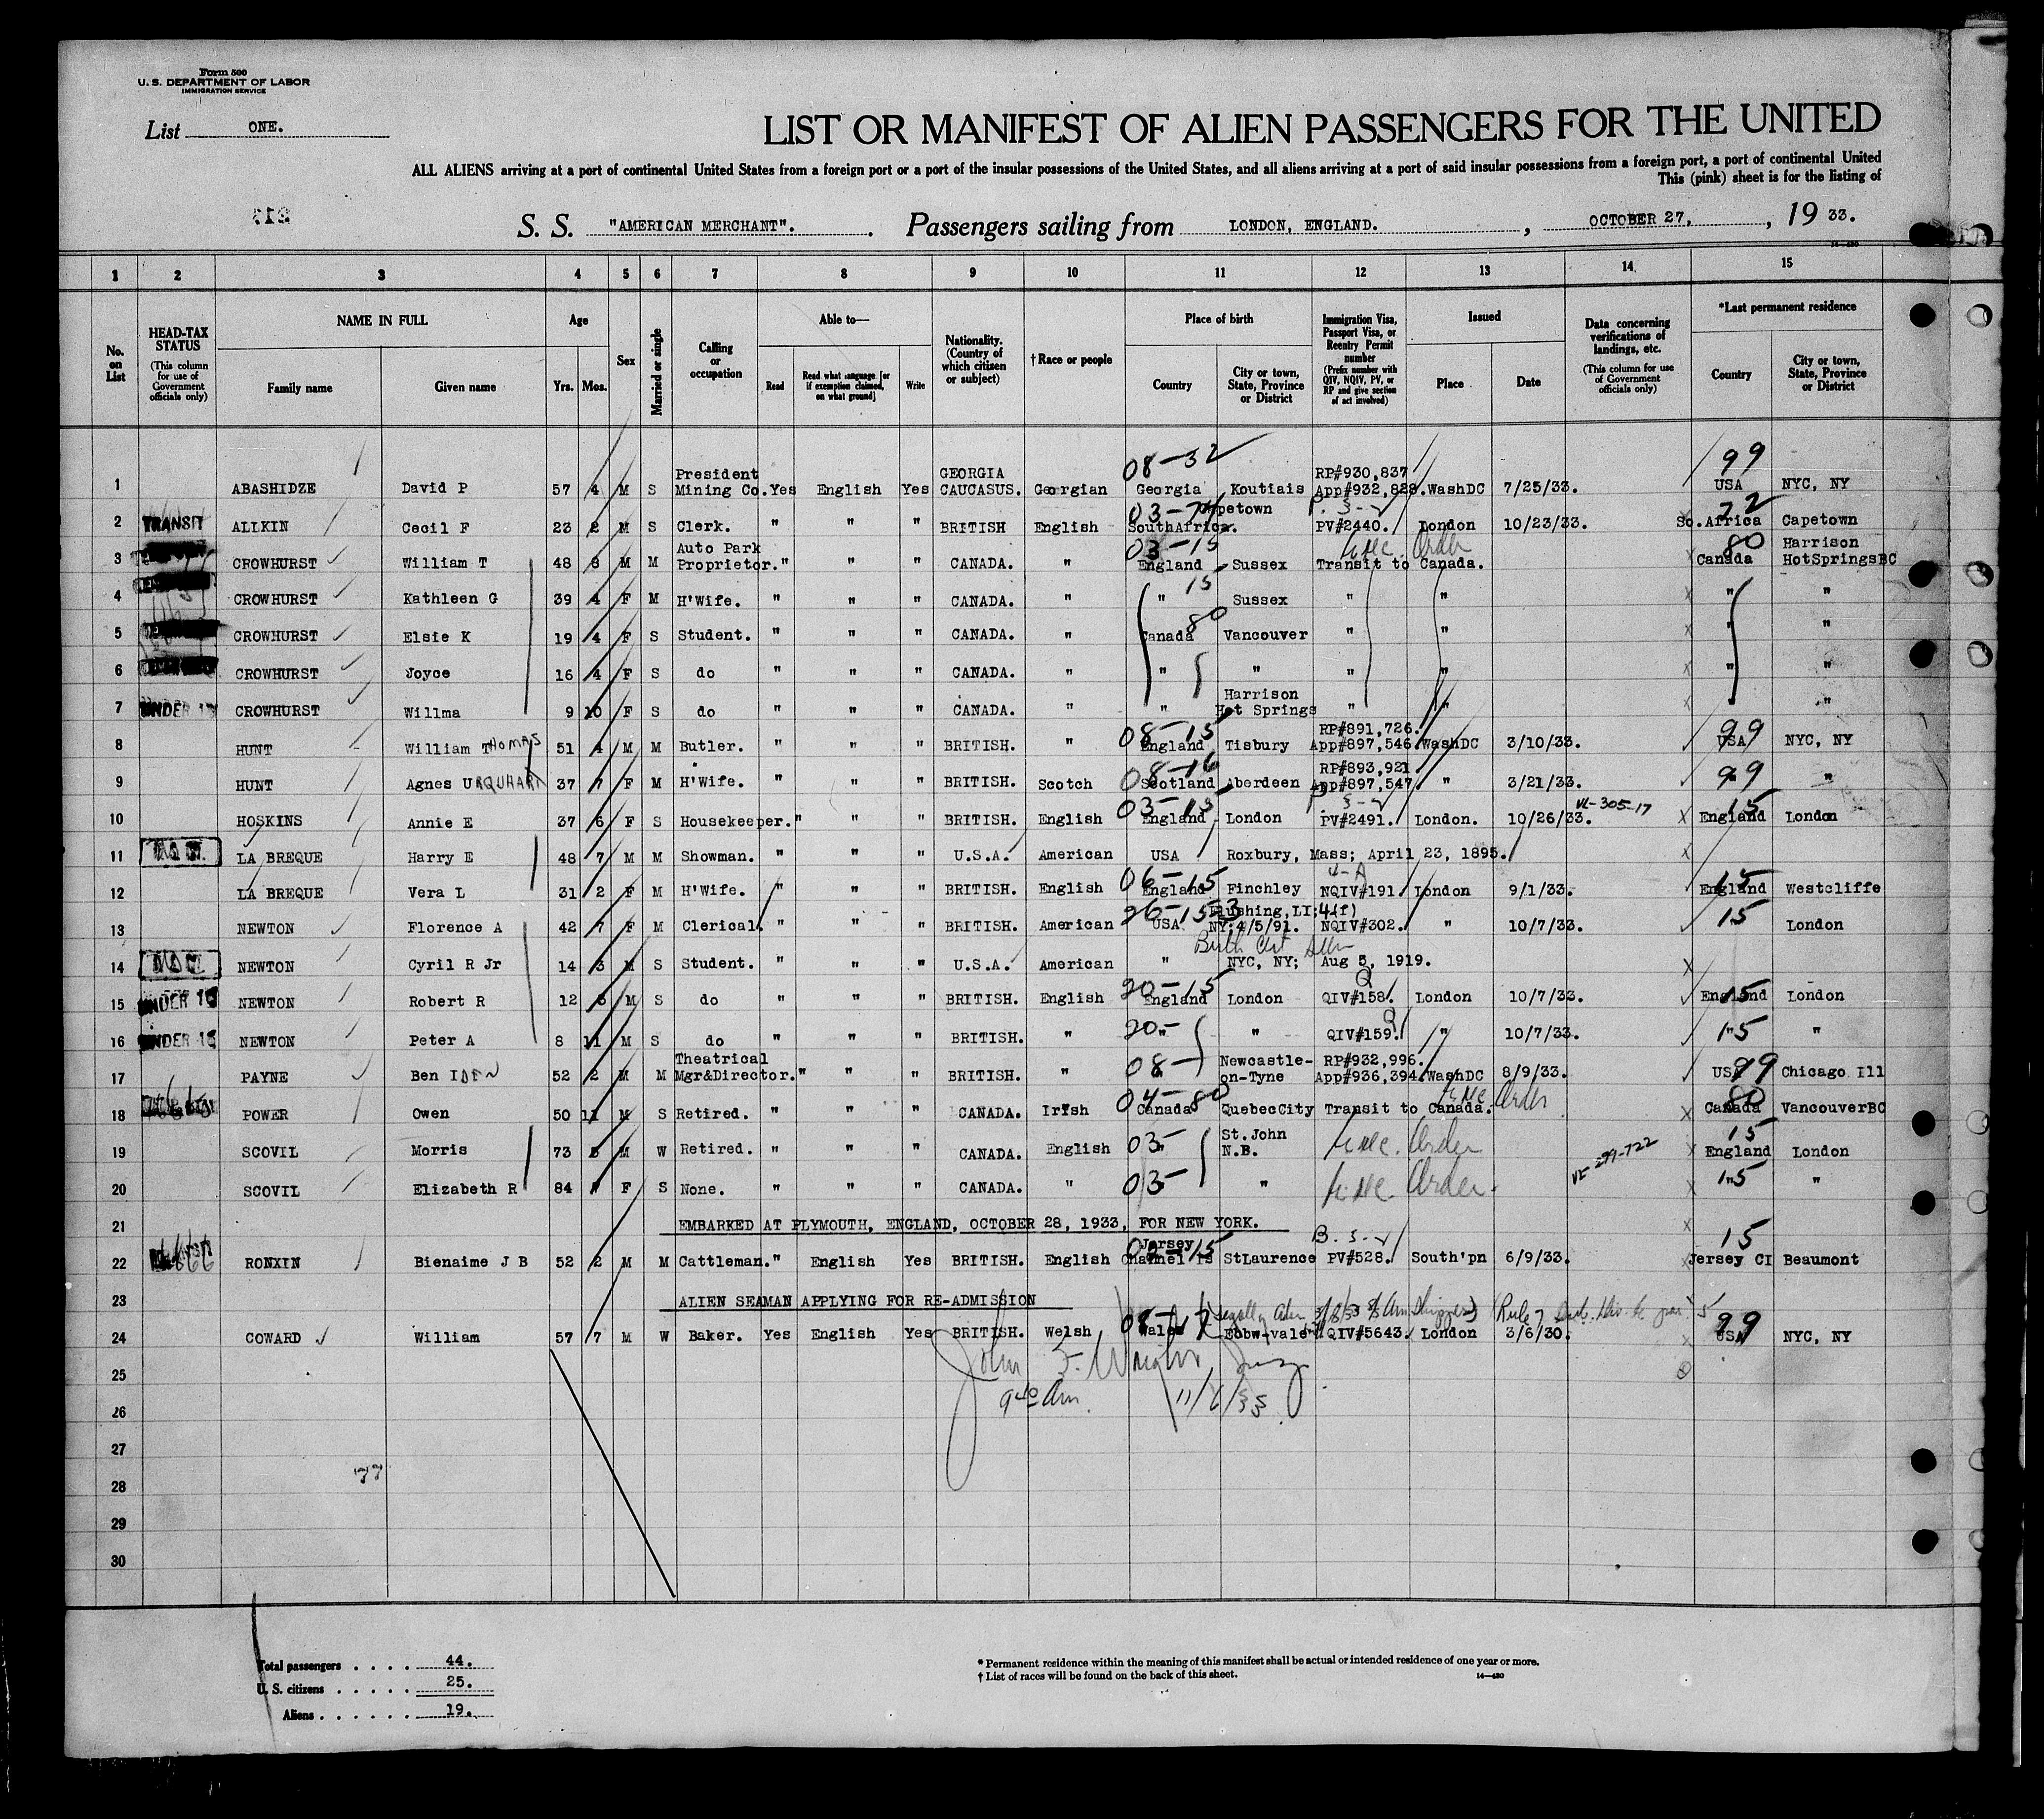 Form 500
U. S. DEPARTMENT OF LABOR
IMMIGRATION SERVICE
List ONE.
LIST OR MANIFEST OF ALIEN PASSENGERS FOR THE UNITED
ALL ALIENS arriving at a port of continental United States from a foreign port or a port of the insular possessions of the United States, and all aliens arriving at a port of said insular possessions from a foreign port, a port of continental United
This (pink) sheet is for the listing of
S. S. "AMERICAN MERCHANT". Passengers sailing from LONDON, ENGLAND. , OCTOBER 27, , 19 33.
1 2 3 4 5 6 7 8 9 10 11 12 13 14 15
No. on List
HEAD-TAX STATUS (This column for use of Government officials only)
NAME IN FULL Family name Given name
Age Yrs. Mos.
Sex
Married or single
Calling or occupation
Able to— Read Read what language [or if exemption claimed, on what ground] Write
Nationality. (Country of which citizen or subject)
† Race or people
Place of birth Country City or town, State, Province or District
Immigration Visa, Passport Visa, or Reentry Permit number (Prefix number with QIV, NQIV, PV, or RP and give section of act involved)
Issued Place Date
Data concerning verifications of landings, etc. (This column for use of Government officials only)
*Last permanent residence Country City or town, State, Province or District
08-32 99
President GEORGIA RP#930,837
1 ABASHIDZE David P 57 4 M S Mining Co. Yes English Yes CAUCASUS. Georgian Georgia Koutiais App#932,828. WashDC 7/25/33. USA NYC, NY
Capetown 22
2 TRANSIT ALLKIN Cecil F 23 2 M S Clerk. " " " BRITISH English SouthAfrica. PV#2440. London 10/23/33. So.Africa Capetown
Auto Park 03-15 Exec. Order 80 Harrison
3 CROWHURST William T 48 8 M M Proprietor. " " " CANADA. " England Sussex Transit to Canada. Canada HotSpringsBC
4 CROWHURST Kathleen G 39 4 F M H'Wife. " " " CANADA. " " 15 Sussex " " " "
5 CROWHURST Elsie K 19 4 F S Student. " " " CANADA. " Canada 80 Vancouver " " " "
6 CROWHURST Joyce 16 4 F S do " " " CANADA. " " " " " " "
Harrison
7 UNDER 16 CROWHURST Willma 9 10 F S do " " " CANADA. " " Hot Springs " " "
08-15 RP#891,726. 99
8 HUNT William THOMAS 51 4 M M Butler. " " " BRITISH. " England Tisbury App#897,546. WashDC 3/10/33. USA NYC, NY
08-16 RP#893,921 99
9 HUNT Agnes URQUHART 37 7 F M H'Wife. " " " BRITISH. Scotch Scotland Aberdeen App#897,547. " 3/21/33. "
03-15 VL-305-17 15
10 HOSKINS Annie E 37 6 F S Housekeeper. " " " BRITISH. English England London PV#2491. London. 10/26/33. England London
11 LA BREQUE Harry E 48 7 M M Showman. " " " U.S.A. American USA Roxbury, Mass; April 23, 1895.
06-15 4-A 15
12 LA BREQUE Vera L 31 2 F M H'Wife. " " " BRITISH. English England Finchley NQIV#191. London 9/1/33. England Westcliffe
26-15-3 Flushing, LI; 4(f) 15
13 NEWTON Florence A 42 7 F M Clerical. " " " BRITISH. American USA NY; 4/5/91. NQIV#302. " 10/7/33. London
Birth Cert
14 NEWTON Cyril R Jr 14 3 M S Student. " " " U.S.A. American " NYC, NY; Aug 5, 1919.
20-15 Q 15
15 UNDER 16 NEWTON Robert R 12 6 M S do " " " BRITISH. English England London QIV#158. London 10/7/33. England London
20- Q 15
16 UNDER 16 NEWTON Peter A 8 11 M S do " " " BRITISH. " " " QIV#159. " 10/7/33. " "
Theatrical 08- Newcastle- RP#932,996. 99
17 PAYNE Ben IDEN 52 2 M M Mgr&Director. " " " BRITISH. " " on-Tyne App#936,394. WashDC 8/9/33. USA Chicago Ill
04-80 Exec. Order 80
18 POWER Owen 50 11 M S Retired. " " " CANADA. Irish Canada QuebecCity Transit to Canada. Canada VancouverBC
03- St. John Exec. Order 15
19 SCOVIL Morris 73 5 M W Retired. " " " CANADA. English " N.B. England London
03- Exec. Order VL-299-722 15
20 SCOVIL Elizabeth R 84 F S None. " " " CANADA. " " " "
21 EMBARKED AT PLYMOUTH, ENGLAND, OCTOBER 28, 1933, FOR NEW YORK.
Jersey 15
22 RONXIN Bienaime J B 52 2 M M Cattleman. " English Yes BRITISH. English Channel Is StLaurence PV#528. South'pn 6/9/33. Jersey CI Beaumont
23 ALIEN SEAMAN APPLYING FOR RE-ADMISSION
08-17 99
24 COWARD William 57 7 M W Baker. Yes English Yes BRITISH. Welsh Wales Ebbw-vale QIV#5643. London 3/6/30. USA NYC, NY
25 John F. Wright, Insp
26 9 40 Am. 11/6/33
27
28 77
29
30
Total passengers . . . . 44.
U. S. citizens . . . . . 25.
Aliens . . . . . . 19.
* Permanent residence within the meaning of this manifest shall be actual or intended residence of one year or more.
† List of races will be found on the back of this sheet. 14—430